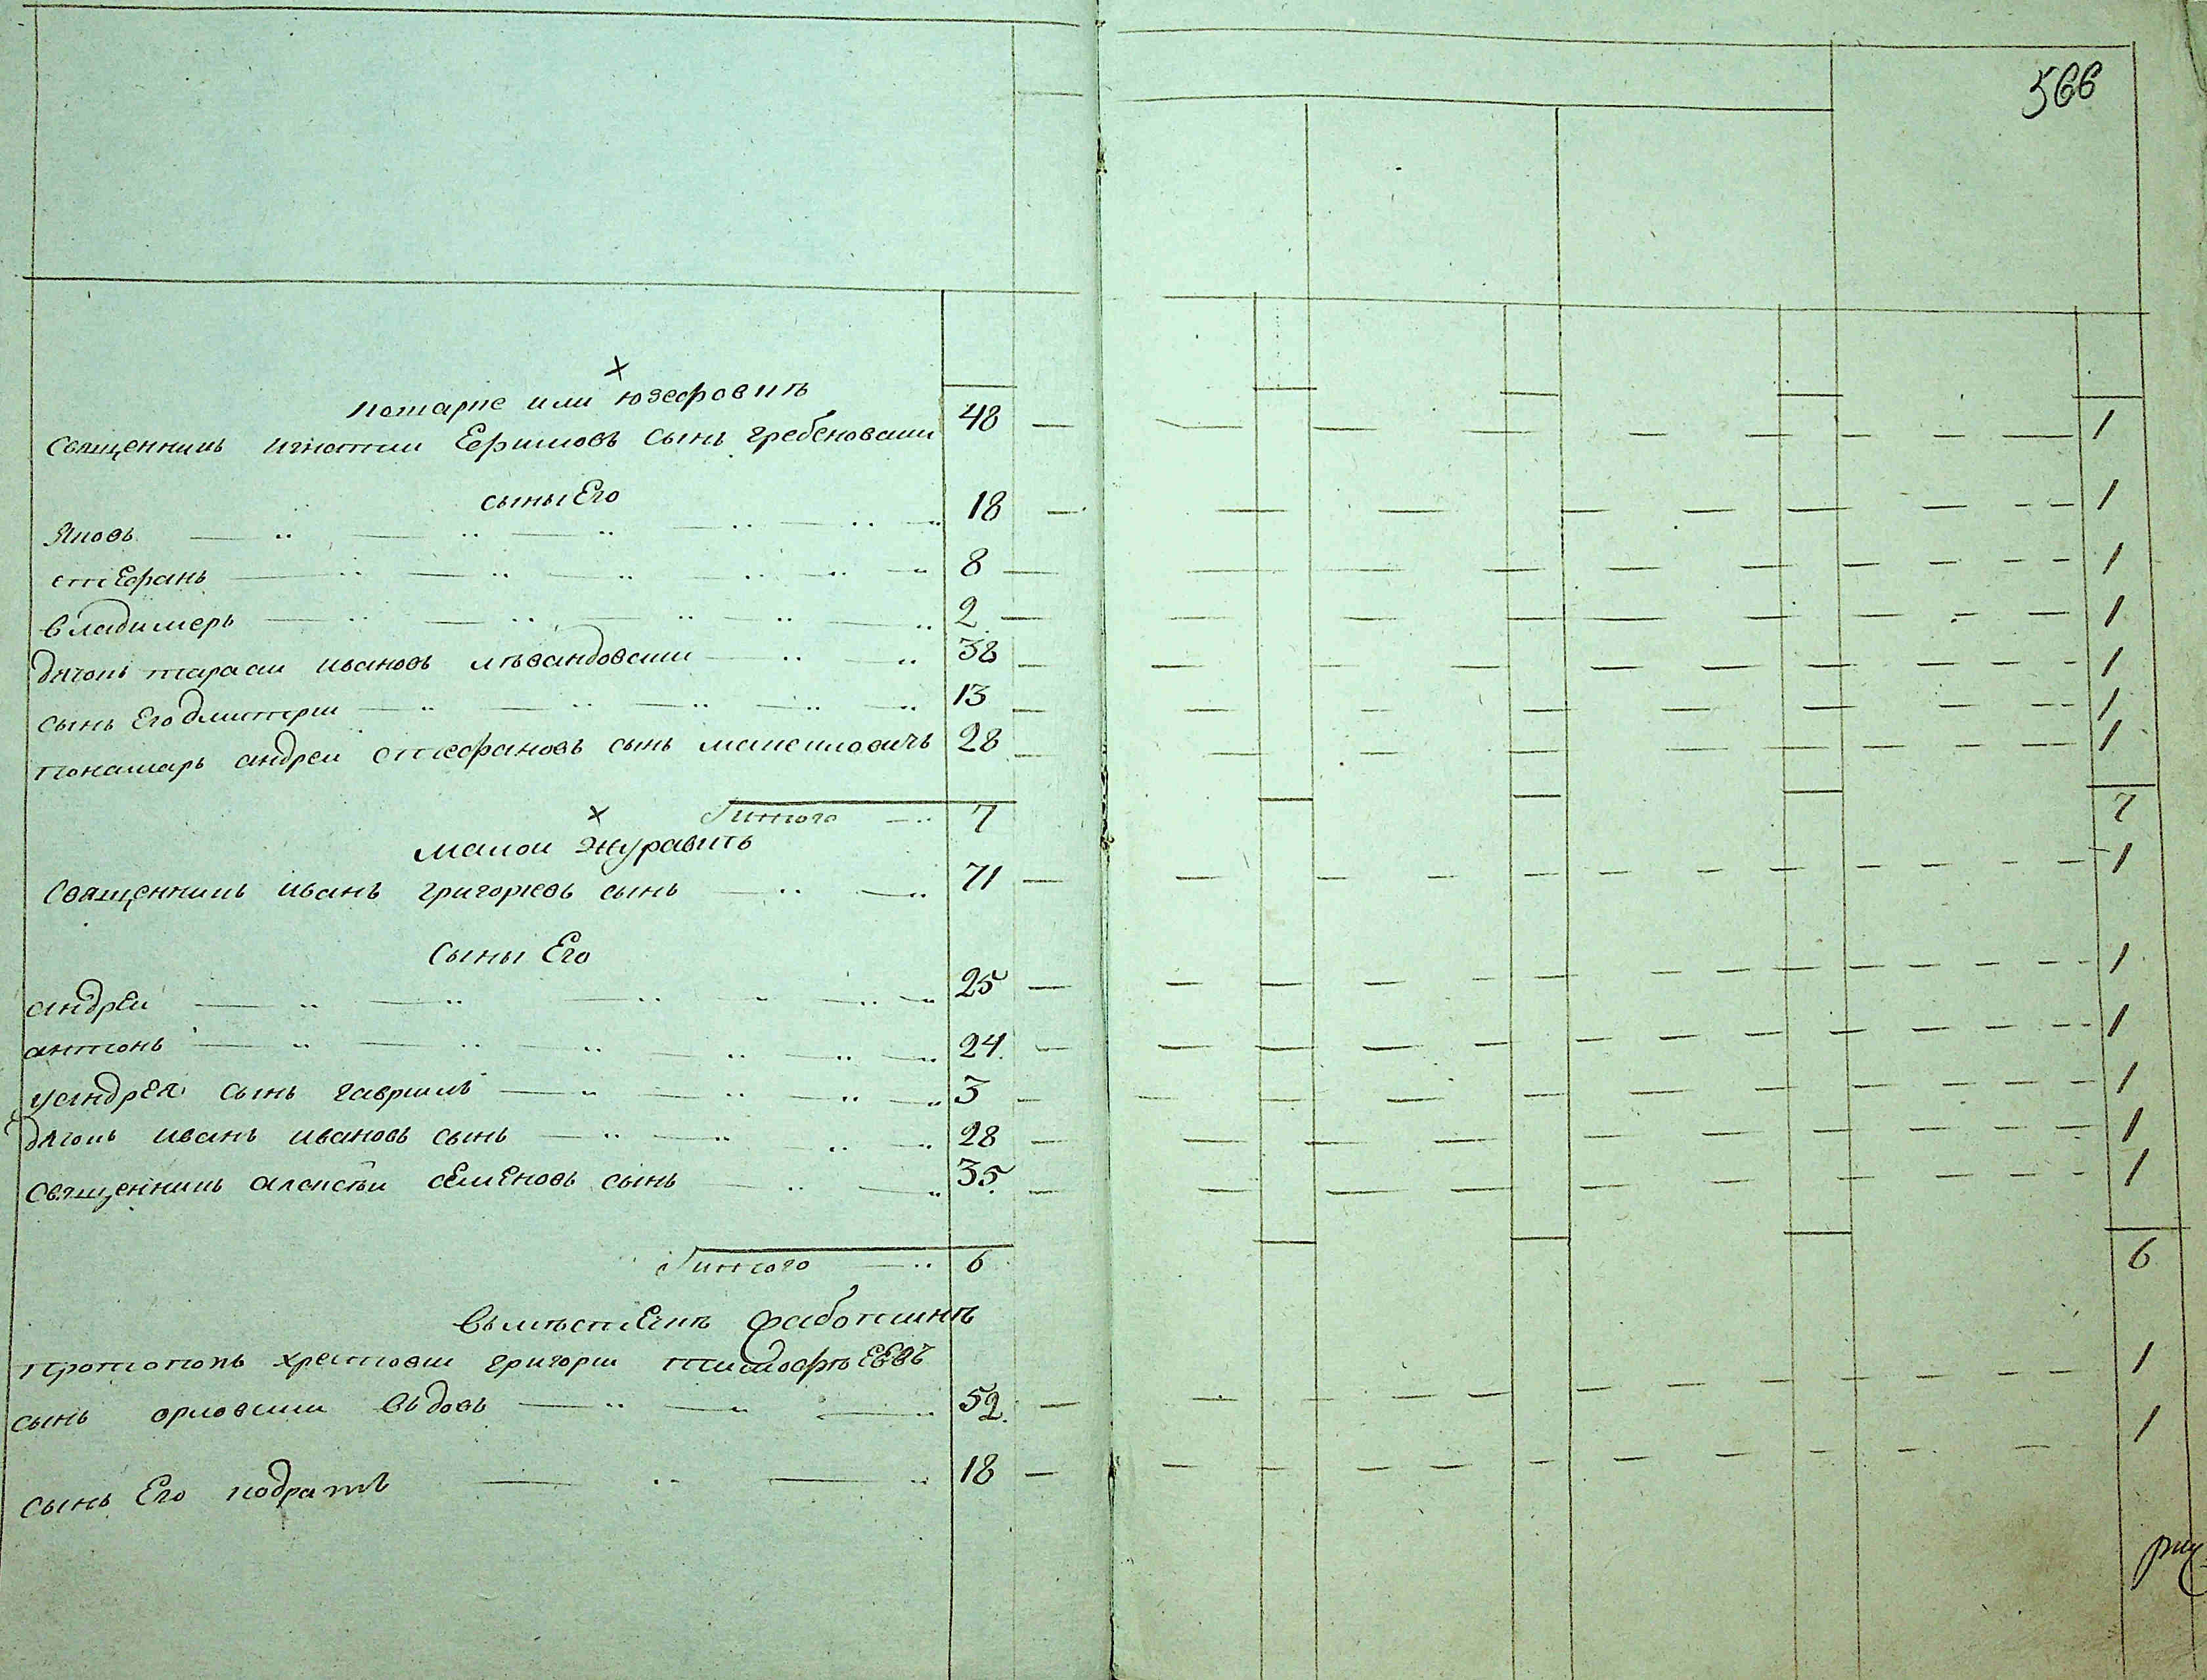 566
х
Потарке или Юзефовкѣ
Священникъ игнатии Ефимовъ сынъ гребеновски 48 1
сыны Его
Яковъ 18 1
стефанъ 8 1
владимеръ 2 1
дячокъ тараси ивановъ лѣвандовски 38 1
сынъ Его дмитри 13 1
понамарь андреи стефановъ сынъ 28 1
Итого 7 7
х
малои журавкѣ
Священникъ иванъ григориевъ сынъ 71 1
Сыны Его
андреи 25 1
антонъ 24 1
у андрея сынъ гаврилъ 3 1
дячокъ иванъ ивановъ сынъ 28 1
Священникъ алексѣи семеновъ сынъ 35 1
Итого 6 6
вместечкѣ
протопопъ григори тимофеевъ 1
сынъ орловски вдовъ 52 1
сынъ Его кодратъ 18